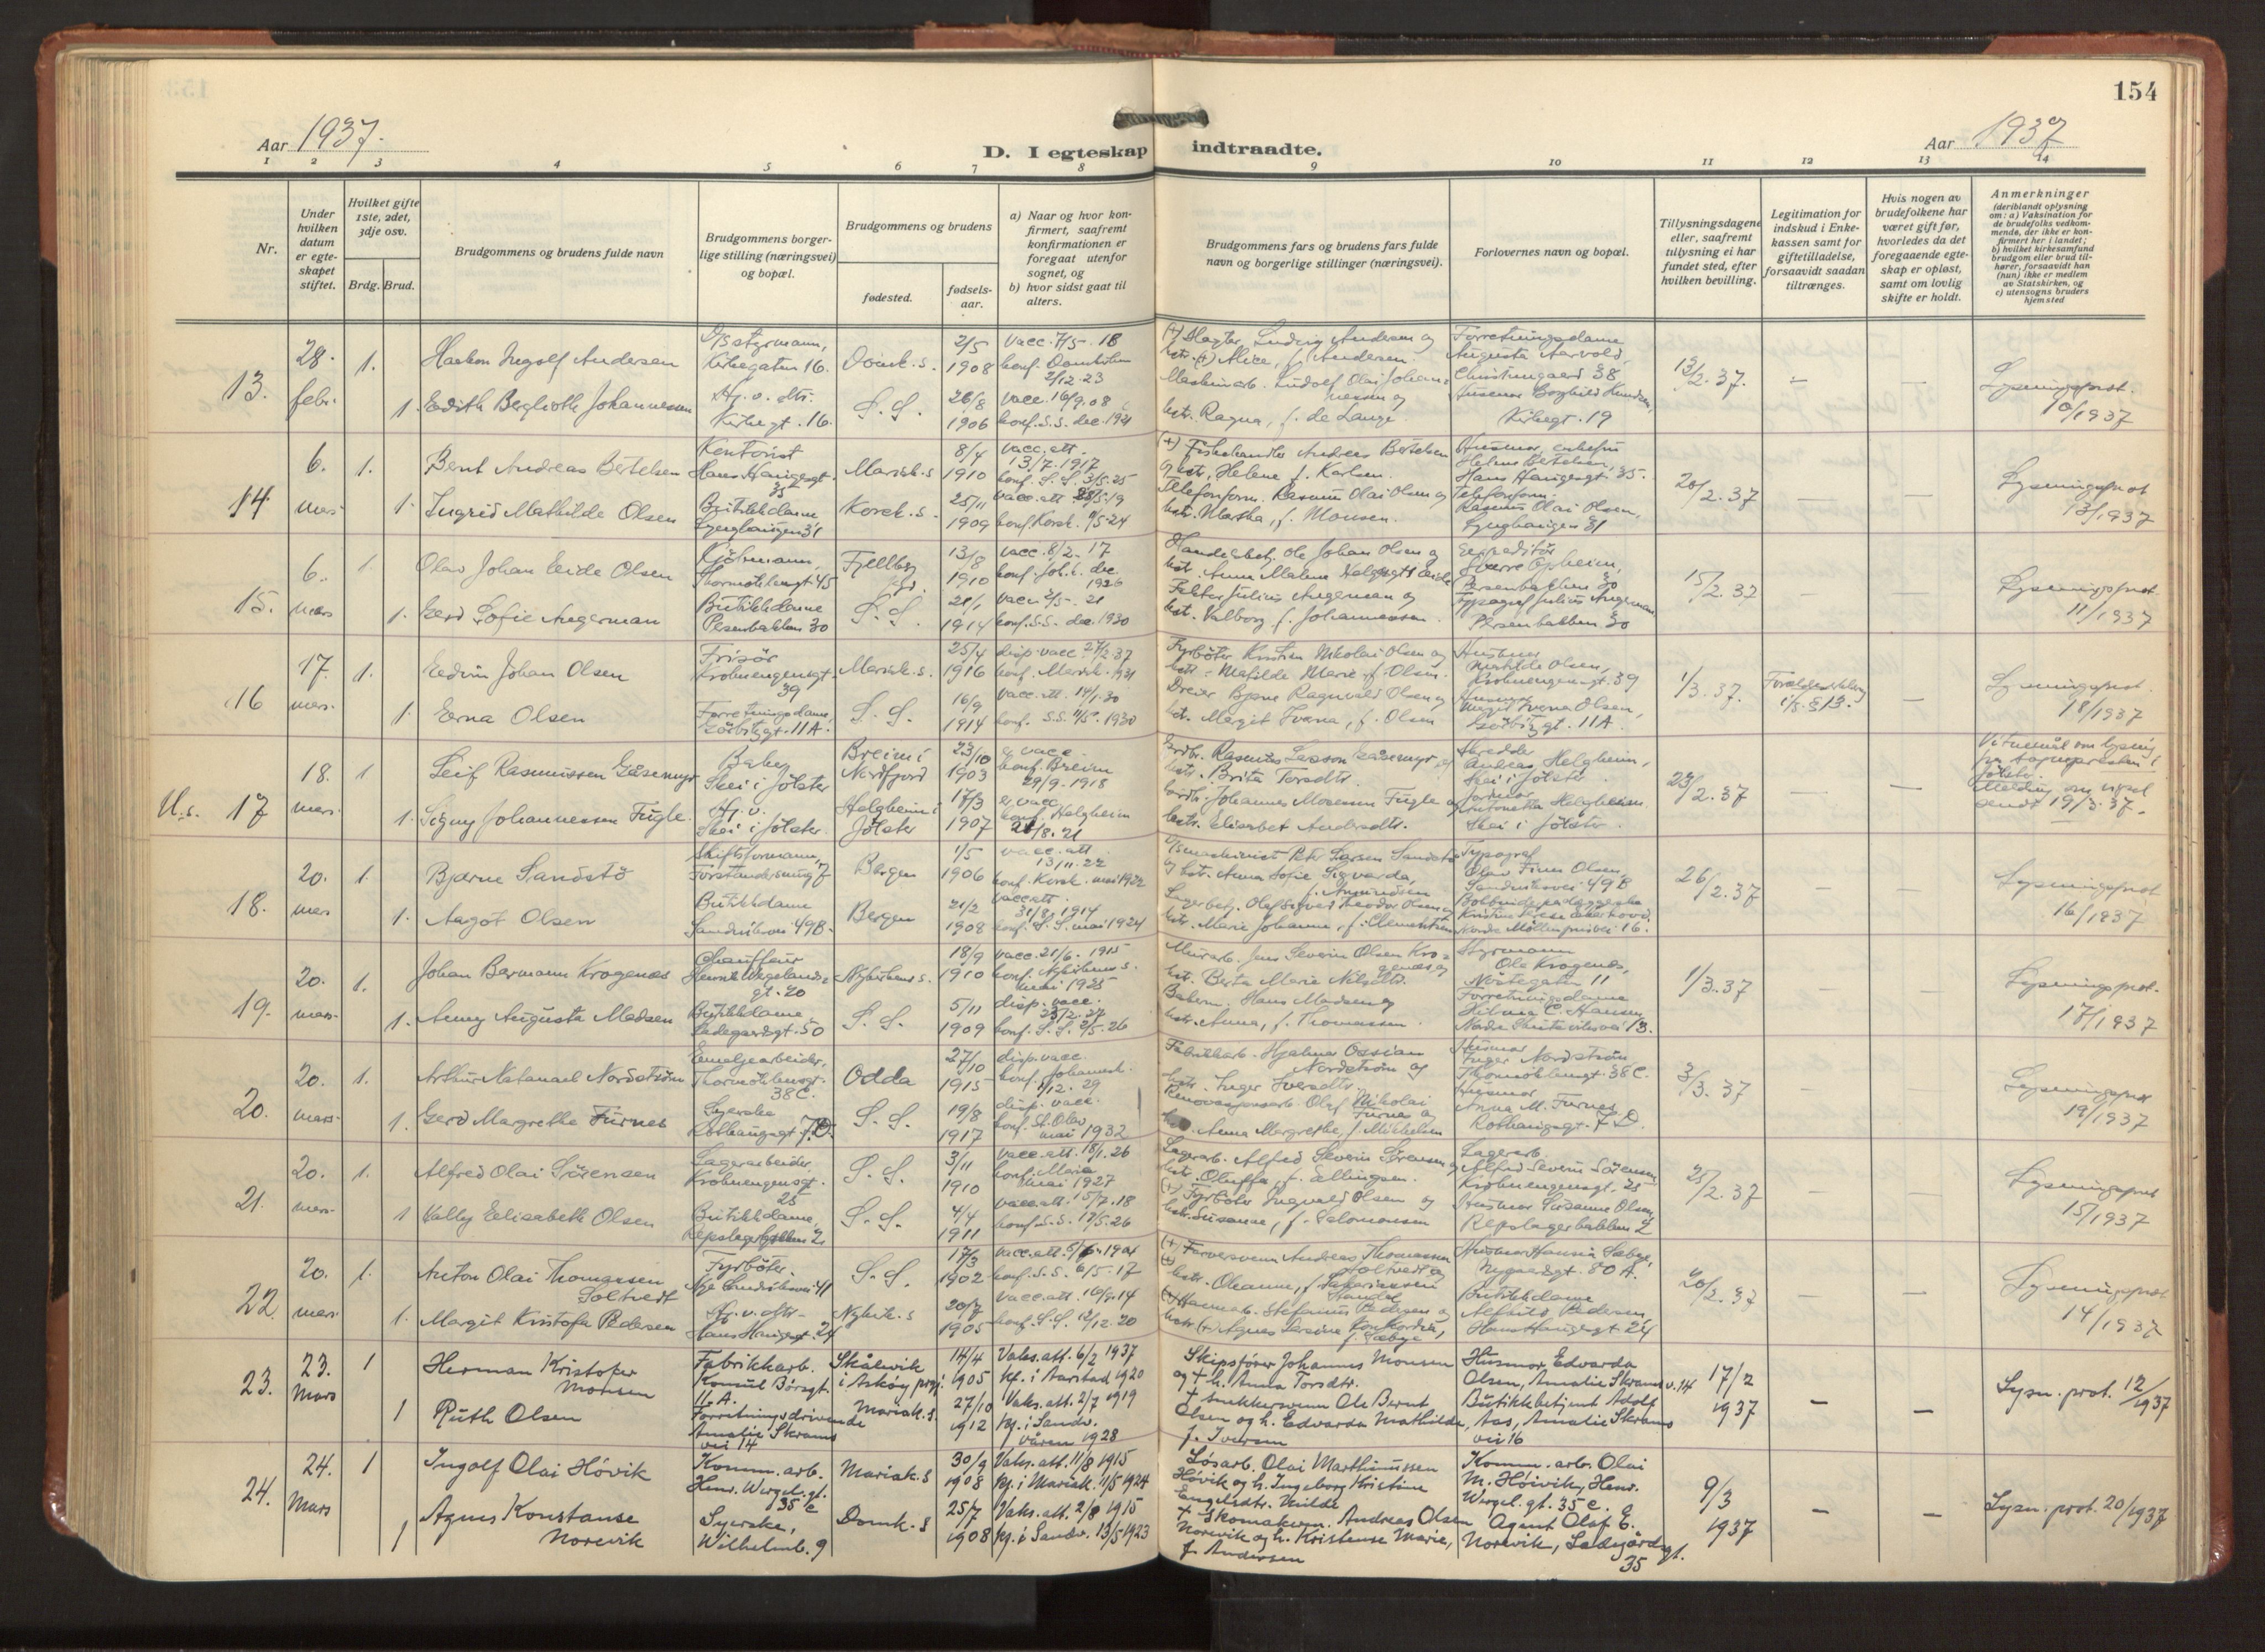 154
Aar 1937.
D. I egteskap indtraadte.
Aar 1937
1 2 3 4 5 6 7 8 9 10 11 12 13 14
Nr.
Under hvilken datum er egte-skapet stiftet.
Hvilket gifte 1ste, 2det, 3dje osv.
Brdg. Brud.
Brudgommens og brudens fulde navn
Brudgommens borger-lige stilling (næringsvei) og bopæl.
Brudgommens og brudens
fødested.
fødsels-aar.
a) Naar og hvor kon-firmert, saafremt konfirmationen er foregaat utenfor sognet, og
b) hvor sidst gaat til alters.
Brudgommens fars og brudens fars fulde navn og borgerlige stillinger (næringsvei).
Forlovernes navn og bopæl.
Tillysningsdagene eller, saafremt tillysning ei har fundet sted, efter hvilken bevilling.
Legitimation for indskud i Enke-kassen samt for giftetilladelse, forsaavidt saadan tiltrænges.
Hvis nogen av brudefolkene har været gift før, hvorledes da det foregaaende egte-skap er opløst, samt om lovlig skifte er holdt.
Anmerkninger
(deriblandt oplysning om: a) Vaksination for de brudefolks vedkom-mende, der ikke er kon-firmert her i landet; b) hvilket kirkesamfund brudgom eller brud til-hører, forsaavidt han (hun) ikke er medlem av Statskirken, og c) utensogns bruders hjemsted
13. 28. febr. 1. Haakon Ingolf Andersen
D/s styrmann, Kirkegaten 16. Domk. s. 2/5 1908 vacc. 7/5 18 konf. Domkirken 2/12 23
(+) Slagter Ludvig Andersen og hstr. (+) Alice, f. Andersen.
Forretningsdame Augusta Aarvold, Christinegaard 38 13/2. 37. Lysningsprot. 10/1937
1. Edith Berglioth Johannessen
Hj. v. dtr. Kirkegt. 16. S. S. 26/8 1906 vacc. 16/9 08 konf. S.S. dec. 1921
Maskinarb. Ludolf Olai Johannessen og hstr. Ragna, f. de Lange.
Husmor Borghild Knudsen, Kirkegt. 19
14 6. mars 1. Bernt Andreas Bertelsen
Kontorist Hans Haugesgt. 35 Mariak. s 8/4 1910 vacc. att. 13/7. 1917 konf. S. S. 3/5-25
(+) Fiskehandler Andreas Bertelsen og hstr. Helene f. Karlsen.
Husmor, enkefru Helene Bertelsen, Hans Haugesgt. 35. 20/2. 37 Lysningsprot 13/1937
1. Ingrid Mathilde Olsen
Butikkdame Lynghaugen 31 Korsk. s. 25/11 1909 konf. Korsk. 11/5-24
Telefonform. Rasmus Olai Olsen og hstr. Martha, f. Monsen.
Telefonform. Rasmus Olai Olsen, Lynghaugen 31
15. 6. mars 1. Olav Johan Eide Olsen
Kjölmann, Thormöhlensgt 45 Fjellberg 13/8 1910 vacc. 8/2. 17 konf. Joh. k. dec. 1926
Handelsbetj. Ole Johan Olsen og
Expeditör Sverre Opheim, Persenbakken 30 15/2. 37 Lysningsprot 11/1937
1. Gerd Sofie Angerman
Butikkdame Persenbakken 30 S. S. 21/1 1914 vacc. 2/5. 21 konf. S.S. dec. 1930
Faktor Julius Angerman og hstr. Valborg f. Johannessen.
Typograf Julius Angerman Persenbakken 30
16 17. mars. 1. Edvin Johan Olsen
Frisör Krohnengensgt. 39 Mariak. s. 25/4 1916 disp. vacc. 27/2.37 konf. Mariak. 1931
Fyrböter Kristian Nikolai Olsen og hstr. Mathilde Marie f. Olsen.
Husmor Mathilde Olsen, Krohnengensgt. 39 1/3. 37. Lysningsprot. 18/1937
1. Erna Olsen
Forretningsdame, Görbitzgt. 11A. S. S. 16/9 1914 vacc. att. 14/1.30 konf. S.S. 11/5. 1930
Dreier Bjarne Ragnvald Olsen og hstr. Margit Iverna, f. Olsen
Husmor Margit Iverna Olsen, Görbitzgt. 11A
U.s. 17 18. mars. 1 Leif Rasmussen Gåsemyr
Baker Skei i Jölster Breim i Nordfjord 23/10 1903 e. vacc. konf. Breim 29/9. 1918
Grdbr. Rasmus Larsson Gåsemyr og hstr. Brita Torsdtr.
Skredder Andreas Helgheim, Skei i Jölster 23/2. 37
Melding om vigsel sendt 19/3. 37.
1. Signy Johannessen Fugle.
Hj. v. Skei i Jölster. Helgheim i Jölster 17/3 1907 e. vacc. konf. Helgheim 21/8. 21
Johannes Mosessen Fugle og hstr. Elisabet Andersdtr.
Jordmor Antonetta Helgheim Skei i Jölster
18. 20. mars 1. Bjarne Sandstö
Skiftsformann, Forstandersmug 7 Bergen 1/5 1906 vacc. att. 13/11. 22 konf. Korsk. mai 1922
D/s maskinist Peter Larsen Sandstö og hstr. Anna Sofie Sigvarda, f. Amundsen
Typograf Olav Finn Olsen, Sandviksvei 49B 26/2. 37 Lysningsprot 16/1937
1. Aagot Olsen
Butikkdame Sandviksvei 49B. Bergen 21/2 1908 vacc att. 31/8. 1914 konf. S. S. mai 1924
Lagerbetj. Olaf Sigvard Theodor Olsen og hstr. Marie Johanne, f. Clementsen
19. 20. mars. 1. Johan Bermann Krogenæs
Chauffeur Henrik Wergelandsgt. 20 Nykirkens s. 18/9 1910 vacc. 21/6. 1915 konf. Nykirkens s. mai 1925
Murarb. Jens Severin Olsen Krogenæs og hstr. Berta Marie Nilsdtr.
Styrmann Ole Krogenæs, Nöstegaten 11 1/3. 37 Lysningsprot. 17/1937
1. Anny Augusta Madsen
Butikkdame Ladegårdsgt. 50 S. S. 5/11 1909 disp. vacc. 23/2. 37 konf. S. S. 2/5. 26
Bakerm. Hans Madsen og hstr. Anna, f. Thomassen.
Forretningsdame Hilma C. Hansen Nordre Skuteviksvei 13.
20. 20. mars. 1. Arthur Natanael Nordström
Emaljearbeider, Thormöhlensgt. 38C. Odda 27/10 1915 disp. vacc. konf. Johannesk. 1/12. 29
Fabrikkarb. Hjalmar Ossian Nordström og hstr. Inger Iversdtr.
Husmor Inger Nordström, Thormöhlensgt. 38C. 3/3. 37 Lysningsprot 19/1937
1. Gerd Margrethe Furnes
Syerske Rothaugsgt. 7D. S. S. 19/8 1917 disp. vacc. konf. St. Olav mai 1932
Renovasjonsarb. Olaf Nikolai Furnes og Anna Margrethe, f. Mikkelsen
Husmor Anna M. Furnes Rothaugsgt. 7 D.
21. 20. mars. 1. Alfred Olai Sörensen
Lagerarbeider. Krohnengensgt. 25 S. S. 3/11 1910 vacc. att. 18/1. 26 konf. Maria mai 1927
Lagerarb. Alfred Severin Sörensen og hstr. Oluffa, f. Ellingsen.
Lagerarb. Alfred Severin Sörensen, Krohnengensgt. 25 25/2. 37 Lysningsprot 15/1937
1 Vally Elisabeth Olsen
Butikkdame, Repslagerbakken 2. S. S. 4/4 1911 vacc. att. 15/7. 18 konf. S.S. 17/5. 26
(+) Fyrböter Ingvald Olsen og hstr. Susanne, f. Salomonsen
Husmor Susanne Olsen, Repslagerbakken 2
22. 20. mars. 1. Anton Olai Thomassen Soltvedt
Fyrböter. Nye Sandviksvei 41 S. S. 17/3 1902 konf. S. S. 6/5. 17
(+) Farversvenn Andreas Thomassen Soltvedt og hstr. Oleanne, f. Zakariassen
Husmor Hanna Sæbye, Nygaardsgt. 80 A. 20/2. 37 Lysningsprot 14/1937
1. Margit Kristofa Pedersen
Hj. v. dtr. Hans Haugesgt. 24 Nykirk. s 20/7 1905 vacc. att. 10/9. 14 konf. S. S. 12/12. 20
(+) Havnearb. Stefanus Pedersen og hstr. (+) Agnes Lersine Konkordia, f. Sæbye
Butikkdame Alfhild Pedersen, Hans Haugesgt. 24
23. 23. Mars 1 Herman Kristofer Monsen
Fabrikkarb. Konsul Börsgt. 11.A. Skålevik i Askøy prgj. 14/4 1905 Vaks. att. 6/2 1937 kf. i Aarstad 1920
Skipsfører Johannes Monsen og + h. Anna Torsdtr.
Husmor Edvarda Olsen, Amalie Skrams v. 14 17/2 1937 Lysn. prot. 12/1937
1 Ruth Olsen
Forretningsdrivende Amalie Skrams vei 14 Mariak. s. 27/10 1912 Vaks. att. 2/7 1919 kf. i Sandv. våren 1928
+ Snekkersvenn Ole Bernt Olsen og h. Edvarda Mathilde, f. Iversen
Butikkbetjent Adolf Aas, Amalie Skrams vei 16
24. 24. Mars 1 Ingolf Olai Hövik
Komm. arb. Henr. Wergel. gt. 35 c Mariak. s 30/9 1908 Vaks. att. 11/8 1915 kf. i Mariak. 11/5 1924
Løsarb. Olai Marthinussen Hövik og h. Ingeborg Kristine Engelsdtr. Milde
Komm. arb. Olai M. Höivik, Henr. Wergel. gt. 35 c. 9/3 1937 Lysn. prot. 20/1937
1 Agnes Konstanse Norevik
Syerske, Wilhelmb. 9 Domk. s 25/7 1908 Vaks. att. 2/8 1915 kf. i Sandv. 13/5 1923
+ Skomakersv. Andreas Olsen Norevik og h. Kristense Marie, f. Andersen
Agent Olaf E. Norevik, Ladegårdsgt. 35